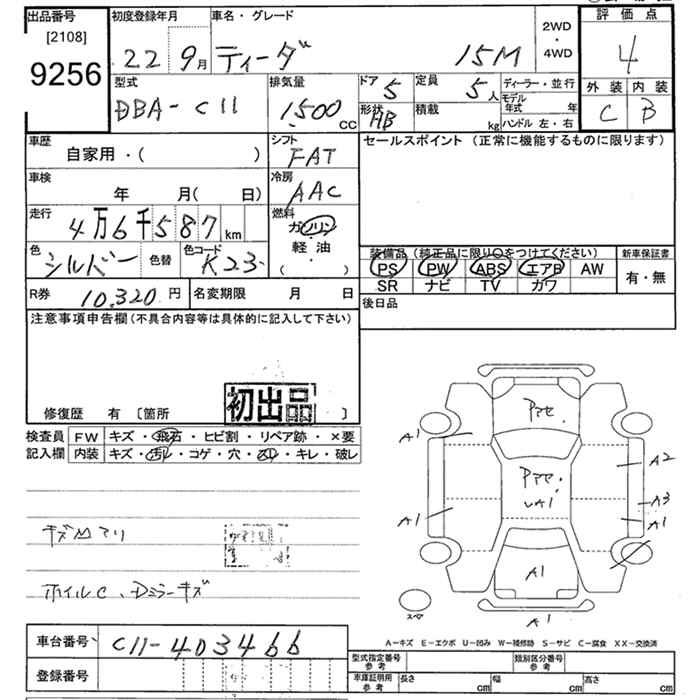 出品番号 初度登録年月 車名・グレード 評価点
[2108]
9256
22 9月 ティーダ 15M 2WD・4WD 4
型式 排気量 ドア 定員 ディーラー・並行 外装 内装
DBA-C11 1500cc 5 5人 モデル年式 年 C B
形状 積載
HB kg ハンドル 左・右
車歴 シフト セールスポイント (正常に機能するものに限ります)
自家用・( ) FAT
車検 冷房
年 月( 日) AAC
走行 燃料
4万6千587km ガソリン
軽・油
( ・ )
色 色替 色コード 装備品 (純正品に限り○をつけてください) 新車保証書
シルバー K23 PS PW ABS エアB AW 有・無
SR ナビ TV カワ
R券 10,320円 名変期限 月 日 後日品
注意事項申告欄 (不具合内容等は具体的に記入して下さい)
初出品
修復歴 有 〔箇所 〕
検査員 FW キズ・飛石・ヒビ割・リペア跡・×要
記入欄 内装 キズ・汚レ・コゲ・穴・スレ・キレ・破レ
Pアセ
A1 A2
Pアセ
A1
A3
A1 A1
A1
キズMアリ
ホイルC、Dミラーキズ
スペア
A-キズ E-エクボ U-凹み W-補修跡 S-サビ C-腐食 XX-交換済
車台番号 C11-403466
型式指定番号 参考 類別区分番号 参考
登録番号 車庫証明用 参考 長さ cm 幅 cm 高さ cm